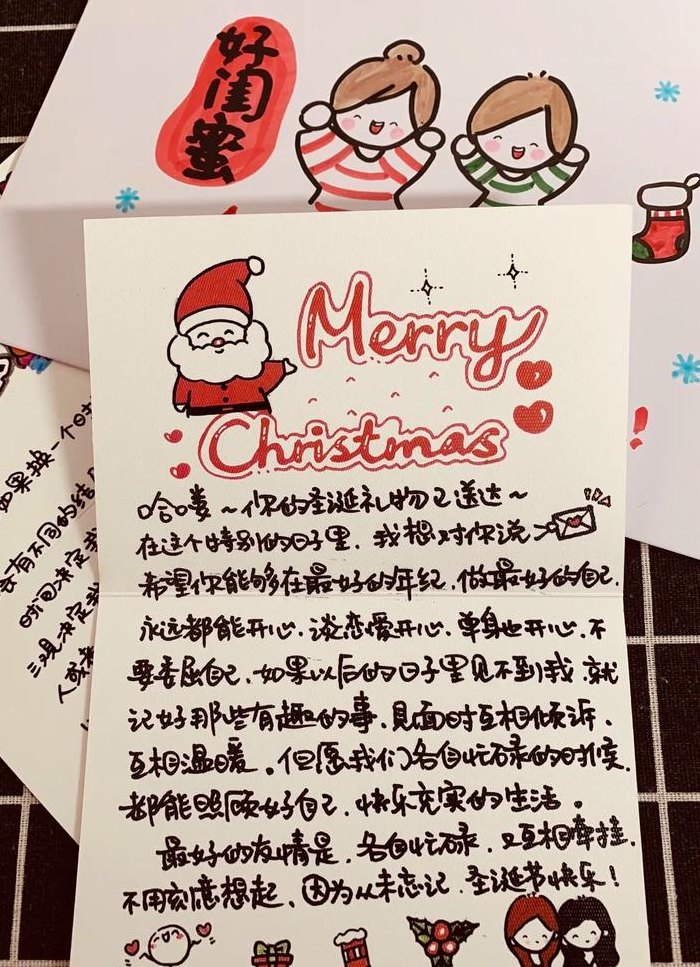 好闺蜜
Merry
Christmas
哈喽~你的圣诞礼物已送达~
在这个特别的日子里,我想对你说
希望你能够在最好的年纪,做最好的自己.
永远都能开心.谈恋爱开心.单身也开心.不
要委屈自己.如果以后的日子里见不到我.就
记好那些有趣的事.见面时互相倾诉.
互相温暖。但愿我们各自忙碌的时候.
都能照顾好自己.快乐充实的生活。
最好的友情是.各自忙碌.又互相牵挂.
不用刻意想起.因为从未忘记.圣诞节快乐!
如果换一个时
会有不同的结
时间决定
三观决定
人